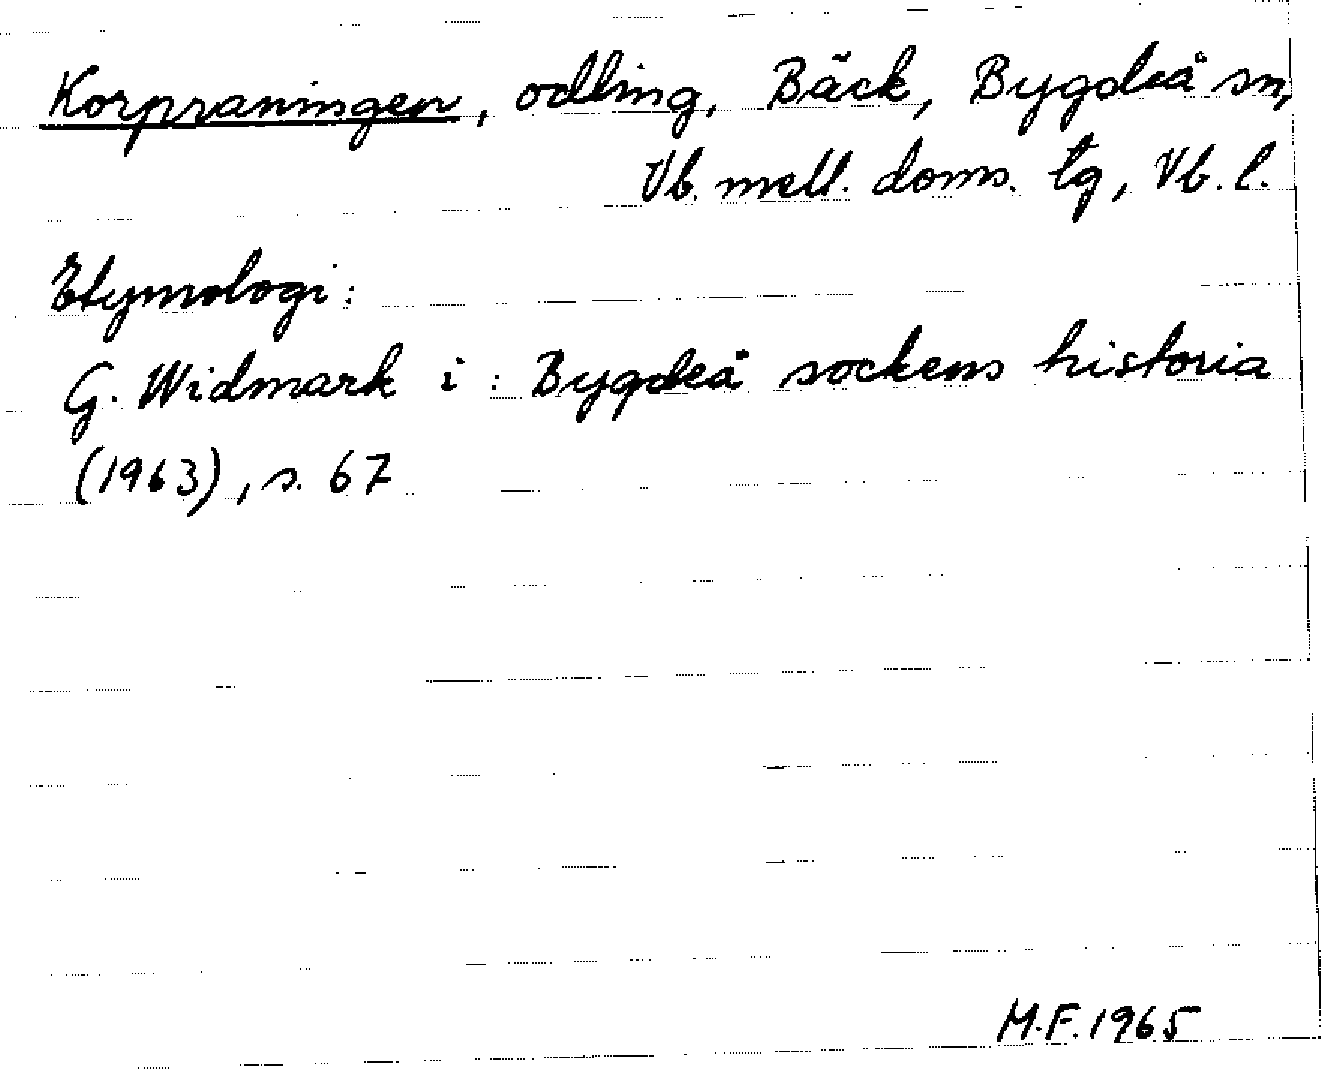 Korpraningen, odling, Bäck, Bygdeå sn,
Vb. mell. doms. tg, Vb. l.
Etymologi:
G. Widmark i: Bygdeå sockens historia
(1963), s. 67
M.F. 1965